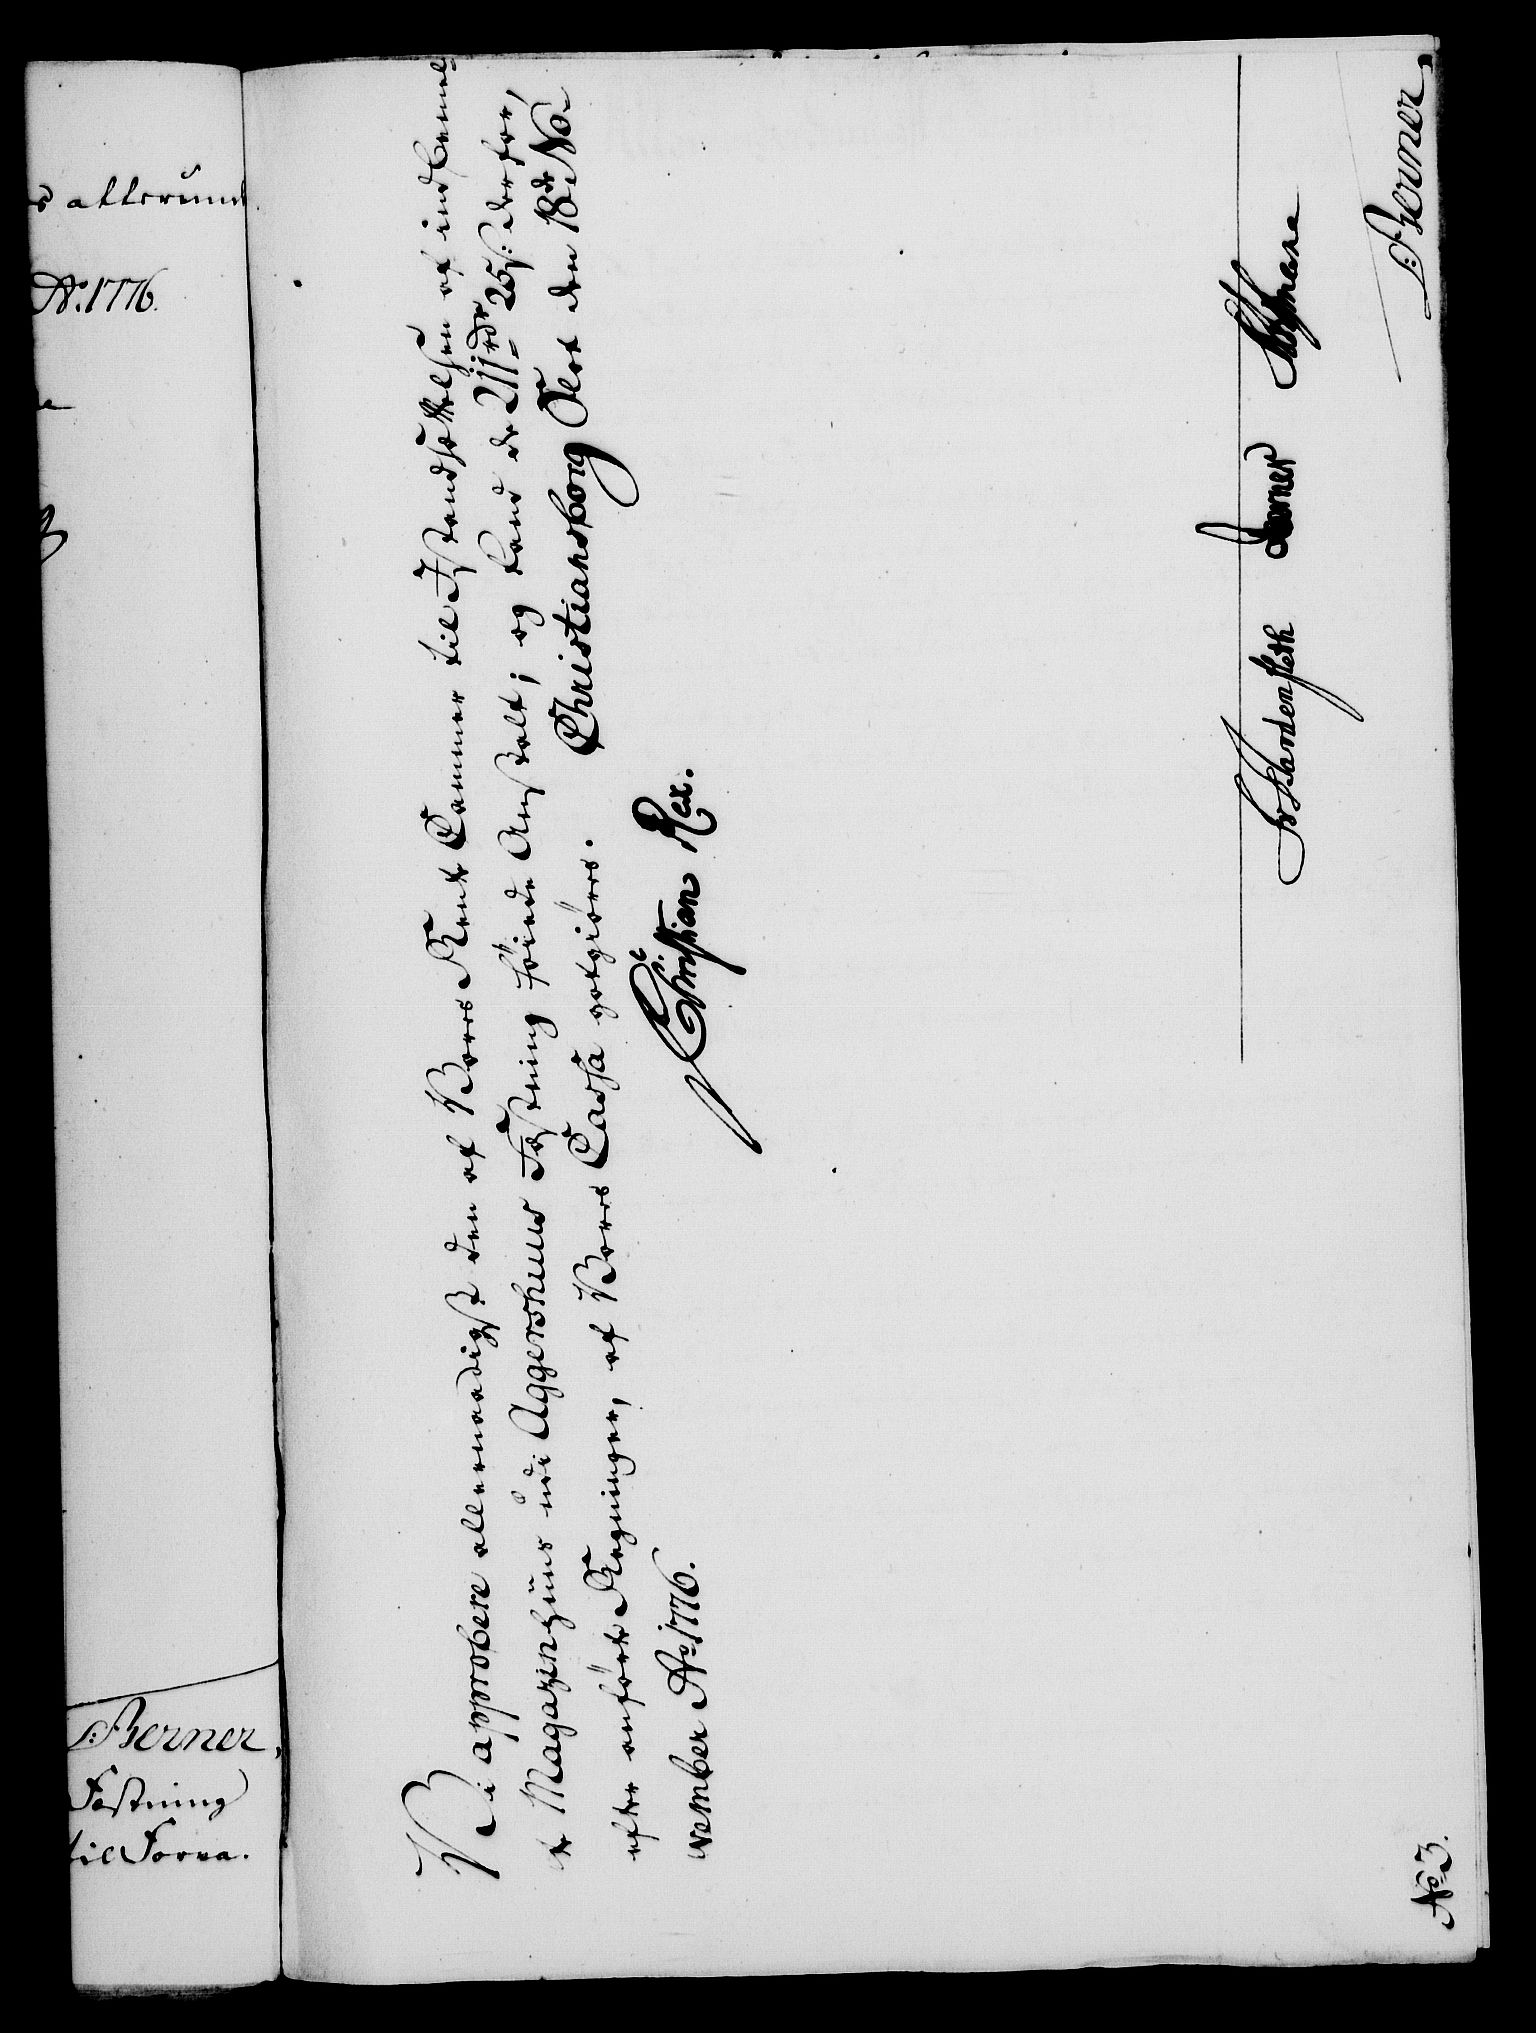 s allerund
Ao. 1776.
S: Berner,
Fæstning
til Forra.
Vi approbere allernaadigst den af Vores Rente Cammer til Istandsættelsen af indbemel-
te Magazinhuus udi Aggershuus Fæstning föiede Anstalt; og kand de 211 rdr 25 s: derfor,
efter anförte Regninger, af Vores Cassa godtgiöres. Christiansborg Slot den 18de No-
vember Ao. 1776.
Christian Rex.
Berner
S: Berner
No. 3.